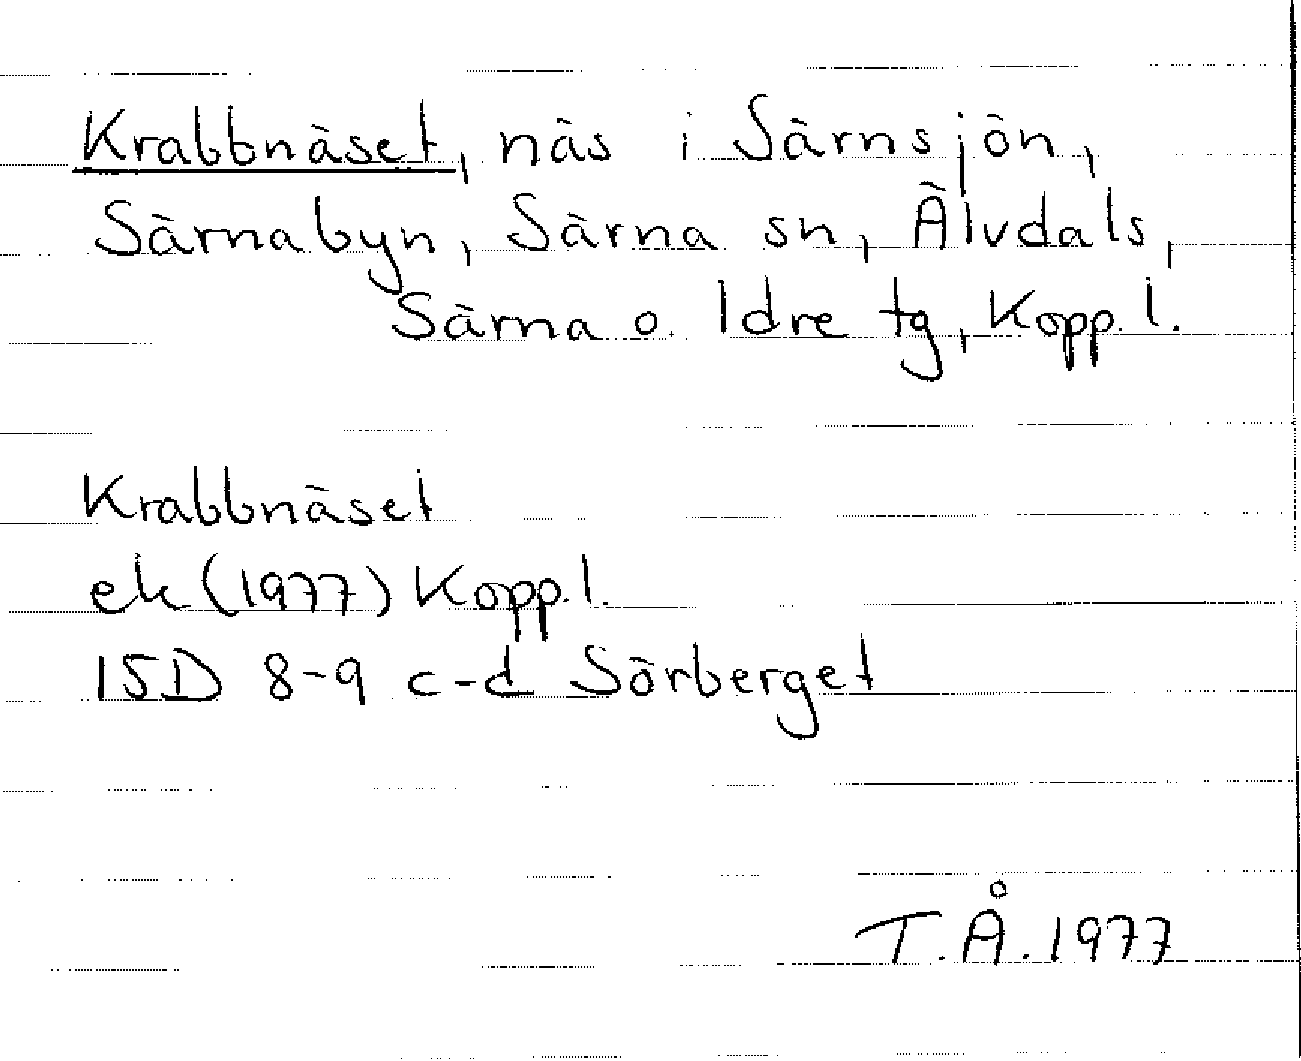 Krabbnäset, näs i Särnsjön,
Särnabyn, Särna sn, Älvdals,
Särna o. Idre tg, Kopp. l.
Krabbnäset
ek (1977) Kopp. l.
15D 8-9 c-d Sörberget
T.Å. 1977